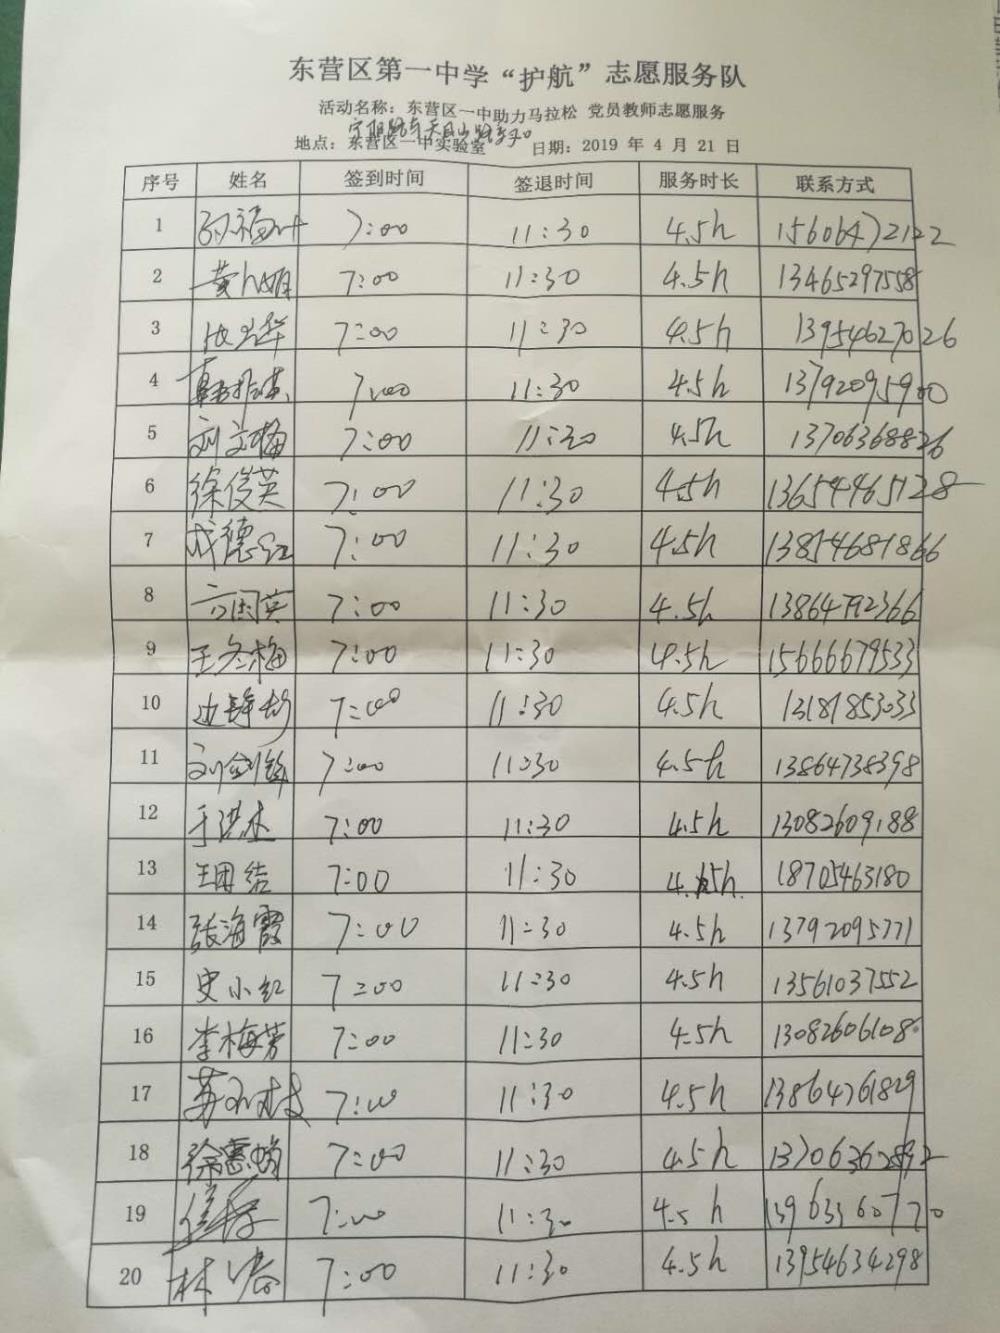 东营区第一中学“护航”志愿服务队
活动名称：东营区一中助力马拉松 党员教师志愿服务
地点：东营区一中实验室 日期：2019 年 4 月 21 日
序号 姓名 签到时间 签退时间 服务时长 联系方式
1 7:00 11:30 4.5h 15606472122
2 7:00 11:30 4.5h 13465297558
3 7:00 11:30 4.5h 13954627026
4 7:00 11:30 4.5h 13792095900
5 刘文梅 7:00 11:30 4.5h 13706368826
6 徐俊英 7:00 11:30 4.5h 13654465128
7 成德红 7:00 11:30 4.5h 13854681866
8 7:00 11:30 4.5h 13864792366
9 王冬梅 7:00 11:30 4.5h 15666679533
10 7:00 11:30 4.5h 13181853033
11 7:00 11:30 4.5h 13864738398
12 于洪杰 7:00 11:30 4.5h 13082609188
13 王团结 7:00 11:30 4.5h 18705463180
14 张海霞 7:00 11:30 4.5h 13792095771
15 史小红 7:00 11:30 4.5h 13561037552
16 李梅芳 7:00 11:30 4.5h 13082606108
17 7:00 11:30 4.5h 13864761829
18 7:00 11:30 4.5h
19 7:00 11:30 4.5h
20 7:00 11:30 4.5h 13954634298